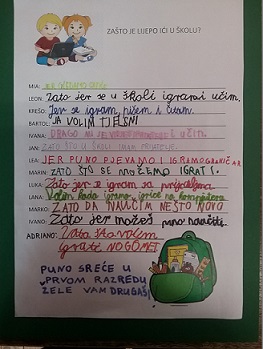 ZAŠTO JE LIJEPO IĆI U ŠKOLU?
MIA:
LEON: Zato jer se u školi igram i učim.
KREŠO: Jer se igram, pišem i
BARTOL: JA VOLIM TJELSNI
IVANA: DRAGO MI JE UČITI
JAN: ZATO ŠTO IMAM PRIJATELJE.
LEA: JER PUNO PJEVAMO I IGRAMO GRANIČAR
MARIN: ZATO ŠTO SE MOŽEMO IGRATI.
LUKA: Zato jer se igram sa prijateljima
LANA: Volim kada igramo igrice na kompjuteru
MARKO: ZATO DA NAUČIM NEŠTO NOVO
IVANO: Zato jer možeš puno naučiti.
ADRIANO: Zato što volim
igrati NOGOMET
PUNO SREĆE U
PRVOM RAZREDU
ŽELE VAM DRUGAŠI